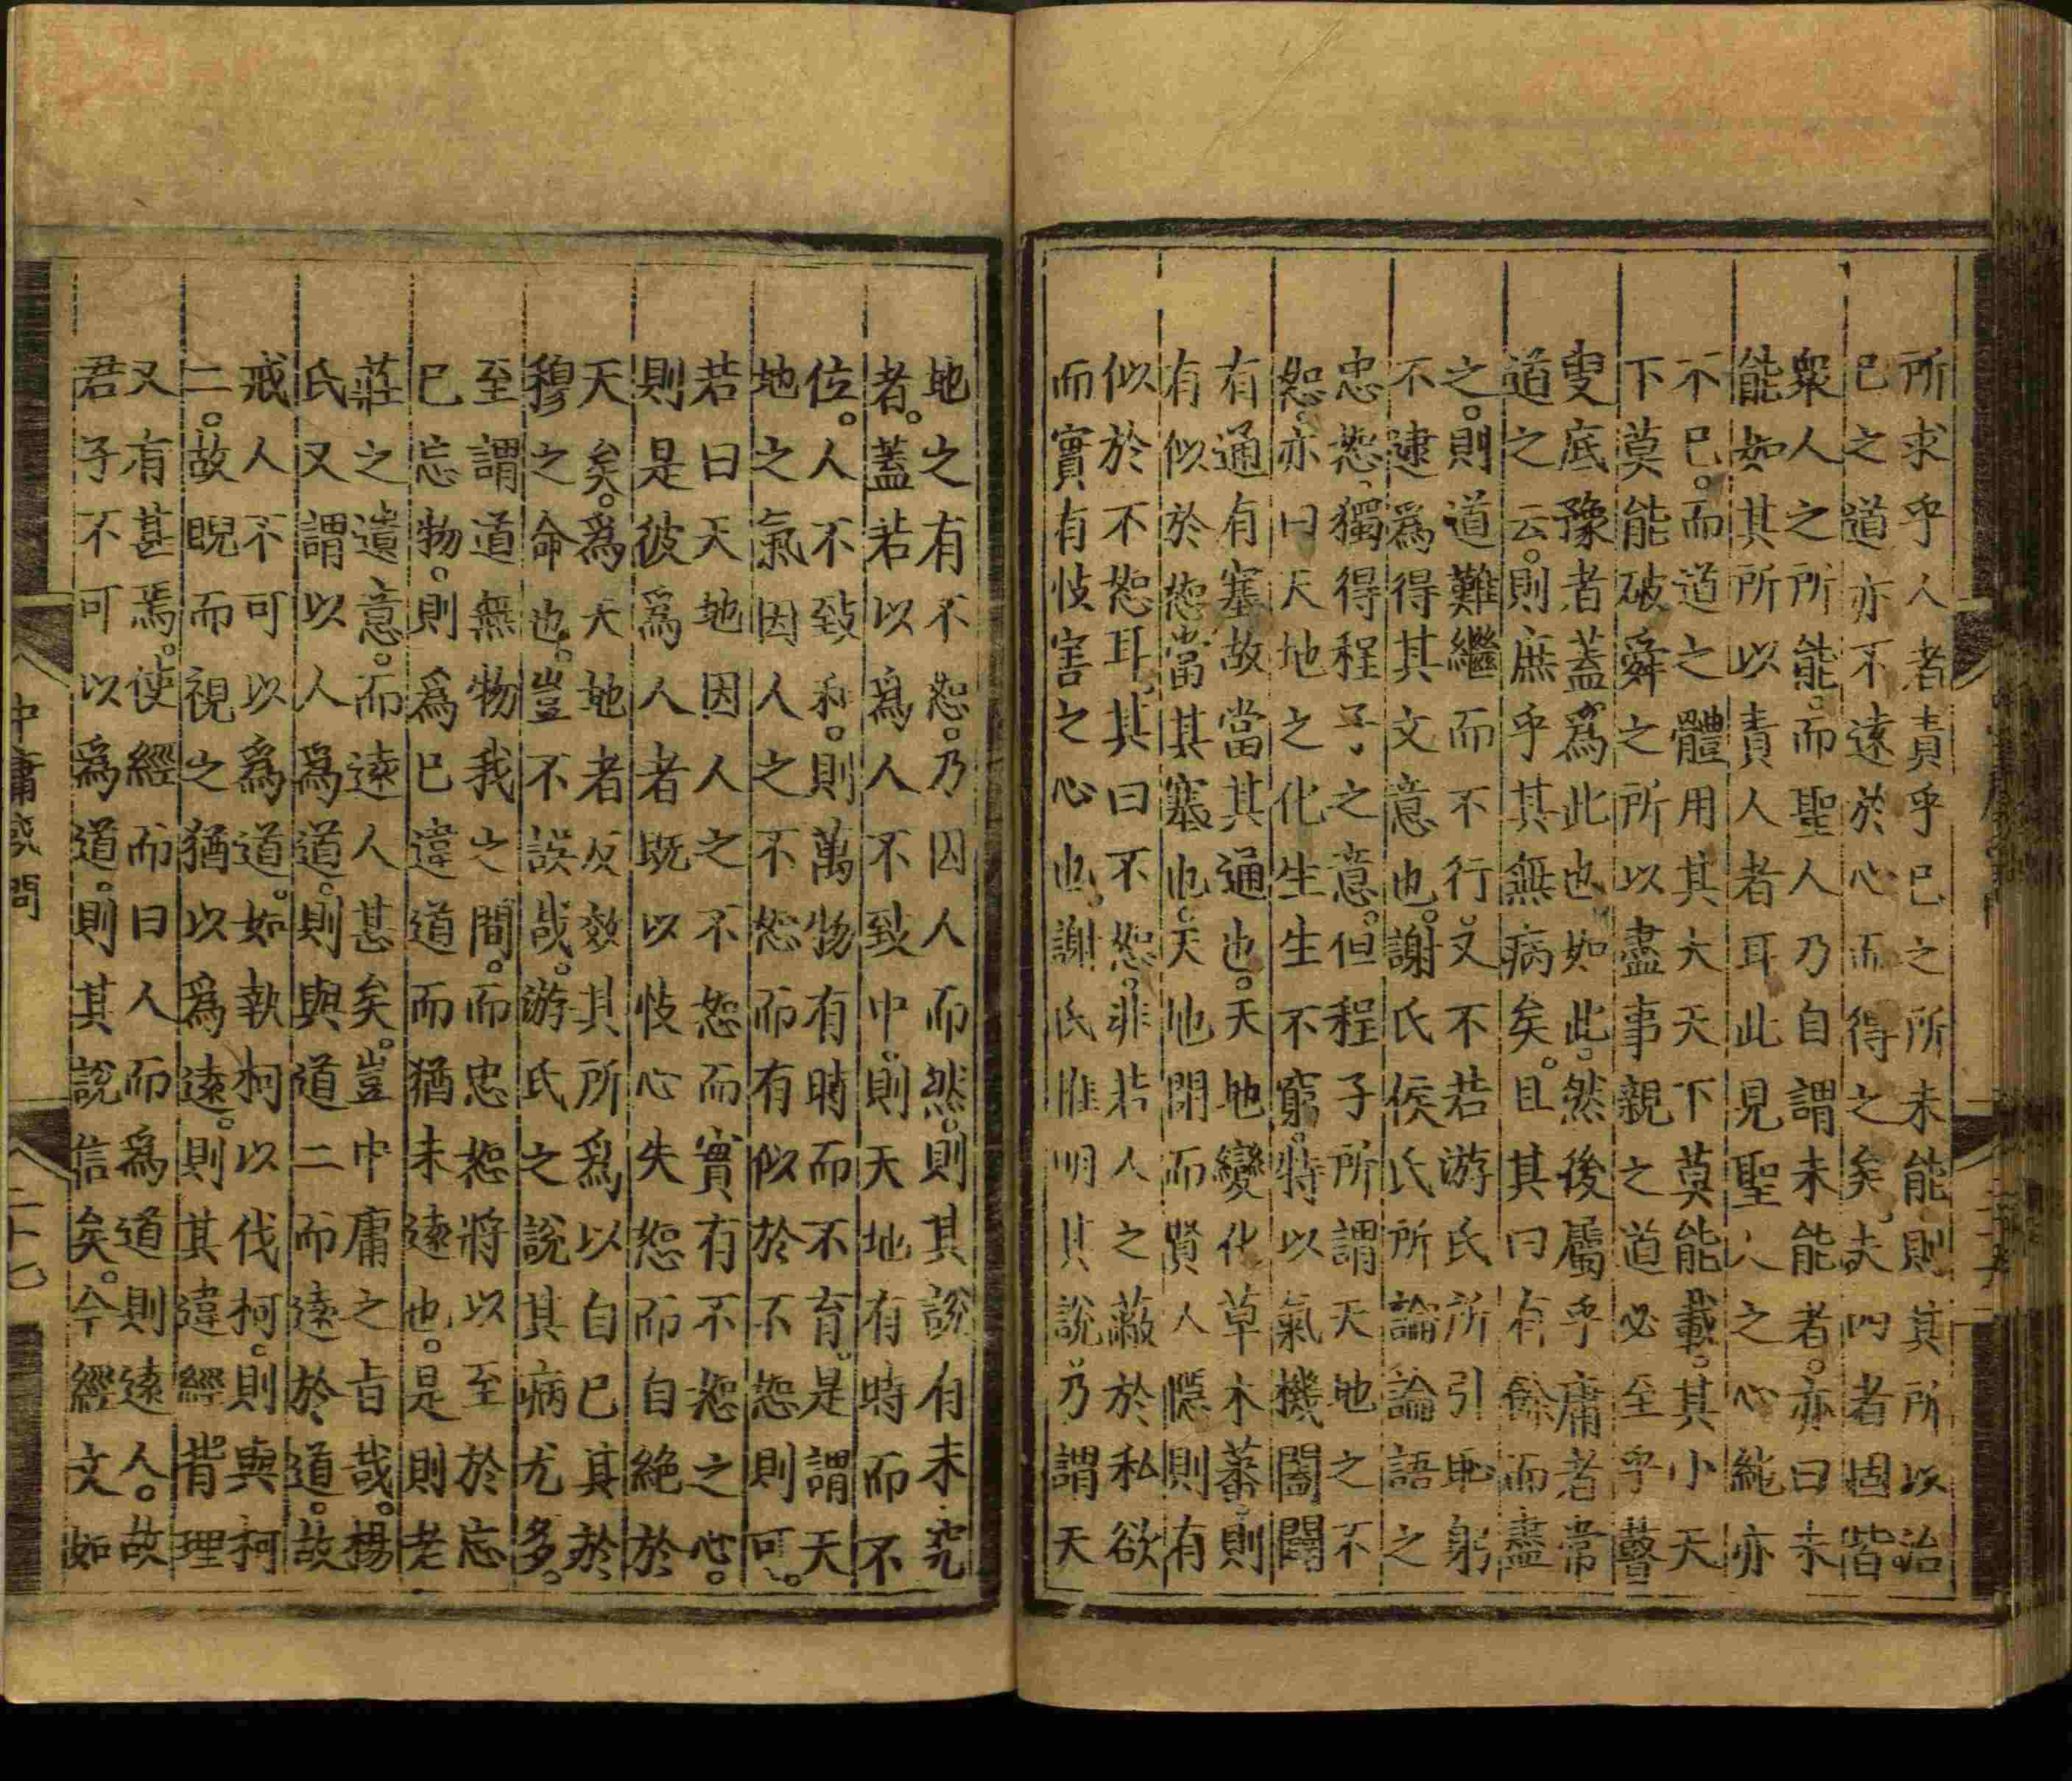 所求乎人者責乎己之所未能則其所以治
己之道亦不遠於心而得之矣夫四者固皆
衆人之所能而聖人乃自謂未能者亦曰未
能如其所以責人者耳此見聖人之心純亦
不已而道之體用其大天下莫能載其小天
下莫能破舜之所以盡事親之道必至乎瞽
叟底豫者蓋爲此也如此然後屬乎庸者常
道之云則庶乎其無病矣且其曰有餘而盡
之則道難繼而不行又不若游氏所引恥躬
不逮爲得其文意也謝氏侯氏所論論語之
忠恕獨得程子之意但程子所謂天地之不
恕亦曰天地之化生生不窮特以氣機闔闢
有通有塞故當其通也天地變化草木蕃則
有似於恕當其塞也天地閉而賢人隱則有
似於不恕耳其曰不恕非若人之蔽於私欲
而實有忮害之心也謝氏推明其說乃謂天
地之有不恕乃因人而然則其說有未究
者蓋若以爲人不致中則天地有時而不
位人不致和則萬物有時而不育是謂天
地之氣因人之不恕而有似於不恕則可
若曰天地因人之不恕而實有不恕之心
則是彼爲人者既以忮心失恕而自絶於
天矣爲天地者反效其所爲以自己其於
穆之命也豈不誤哉游氏之說其病尤多
至謂道無物我之間而忠恕將以至於忘
己忘物則爲己違道而猶未遠也是則老
莊之遺意而遠人甚矣豈中庸之旨哉楊
氏又謂以人爲道則與道二而遠於道故
戒人不可以爲道如執柯以伐柯則與柯
二故睨而視之猶以爲遠則其違經背理
又有甚焉使經而曰人而爲道則遠人故
君子不可以爲道則其說信矣今經文如
中庸或問
二十七